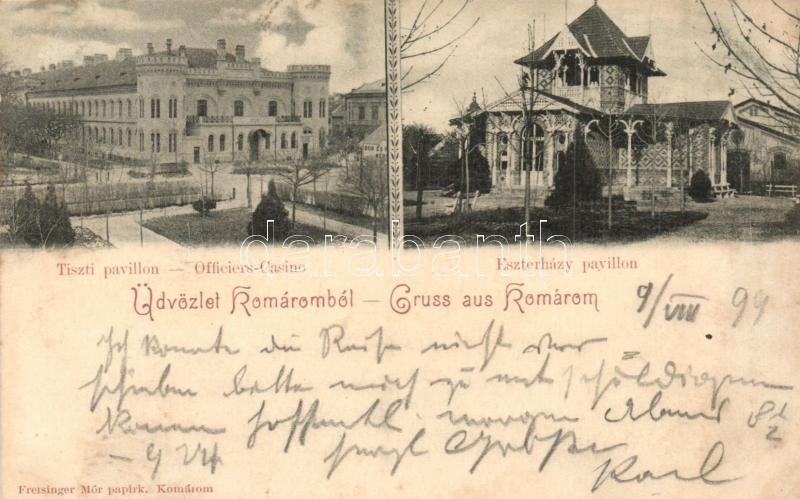 Tiszti pavillon — Officiers-Casino
Eszterházy pavillon
Üdvözlet Komáromból – Gruss aus Komárom
9/VIII 99
Ich konnte die Reise nicht ver
schieben bitte mich zu entschuldigen
kommen hoffentl. morgen Abend 8 1/2
Karl
Freisinger Mór papirk. Komárom
darabanth.com